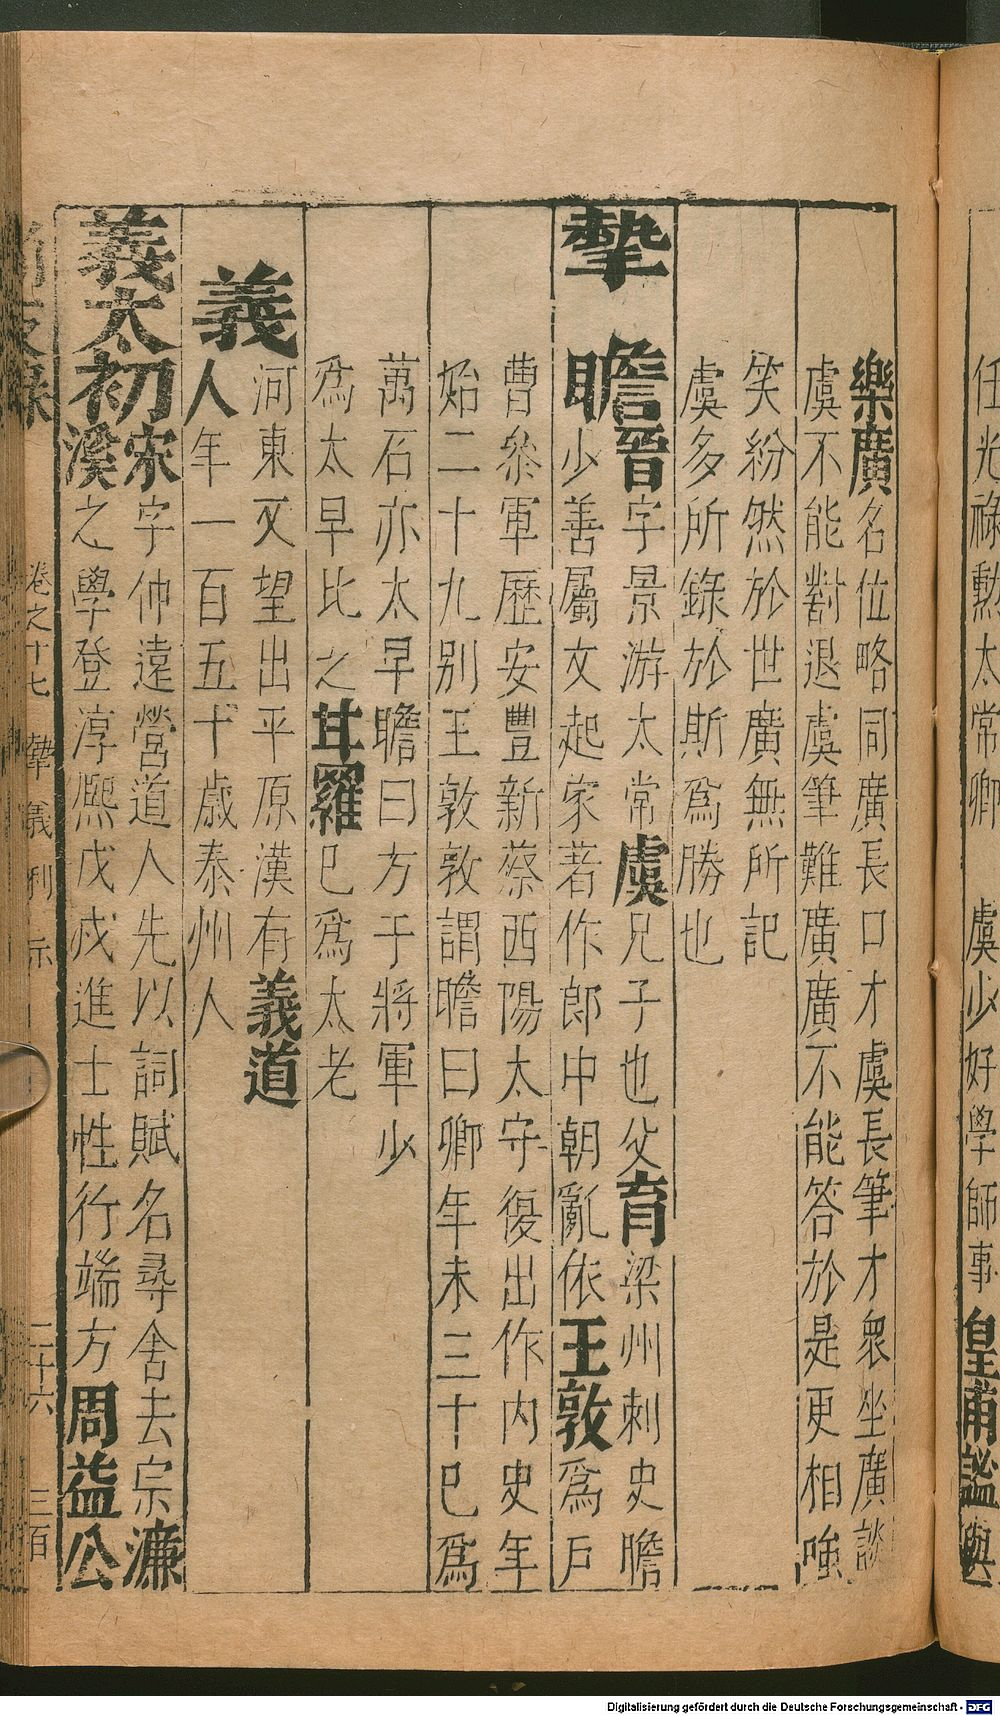 任光祿勲太常卿　虞少好學師事皇甫謐與
樂廣名位略同廣長口才虞長筆才衆坐廣談
虞不能對退虞筆難廣廣不能答於是更相嗤
笑紛然於世廣無所記
虞多所錄於斯爲勝也
摯瞻晉字景游太常虞兄子也父育梁州刺史瞻
少善屬文起家著作郎中朝亂依王敦爲戶
曹叅軍歷安豐新蔡西陽太守復出作内史年
始二十九別王敦敦謂瞻曰卿年未三十巳爲
萬石亦太早瞻曰方于將軍少
爲太早比之甘羅巳爲太老
義河東又望出平原漢有義道
人年一百五十歲泰州人
義太初宋字仲遠營道人先以詞賦名尋舍去宗濂
溪之學登淳熈戊戌進士性行端方周益公
卷之十七　摯義 二十六　三百
Digitalisierung gefördert durch die Deutsche Forschungsgemeinschaft - DFG